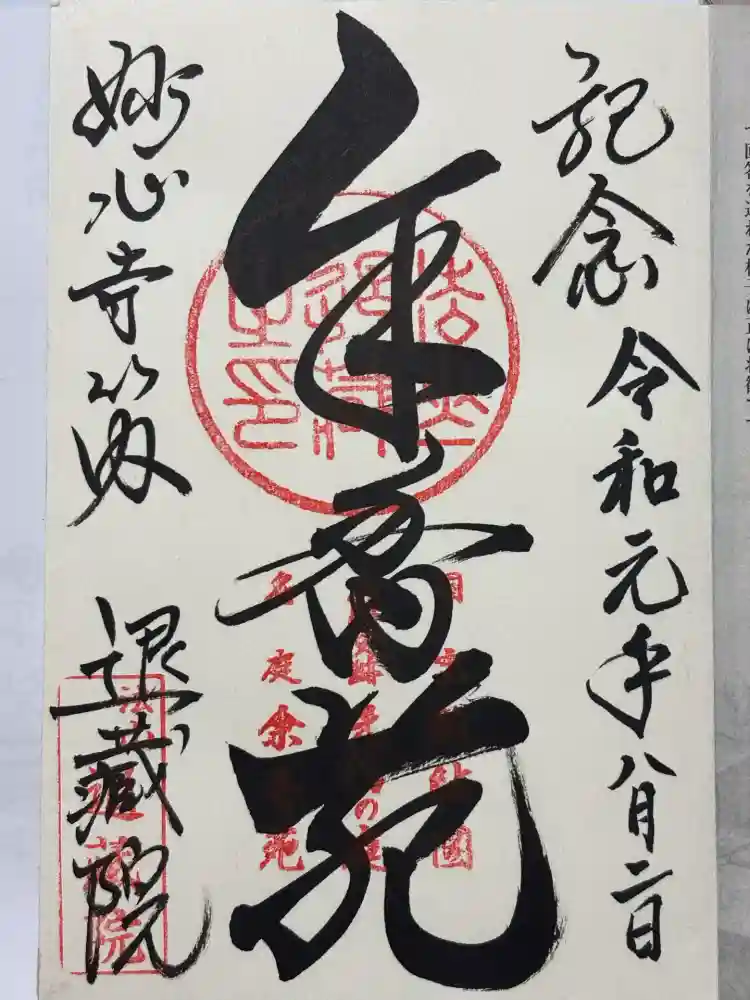 記念 令和元年八月二日
余香苑
妙心寺山内
退蔵院
の庭
名庭余苑